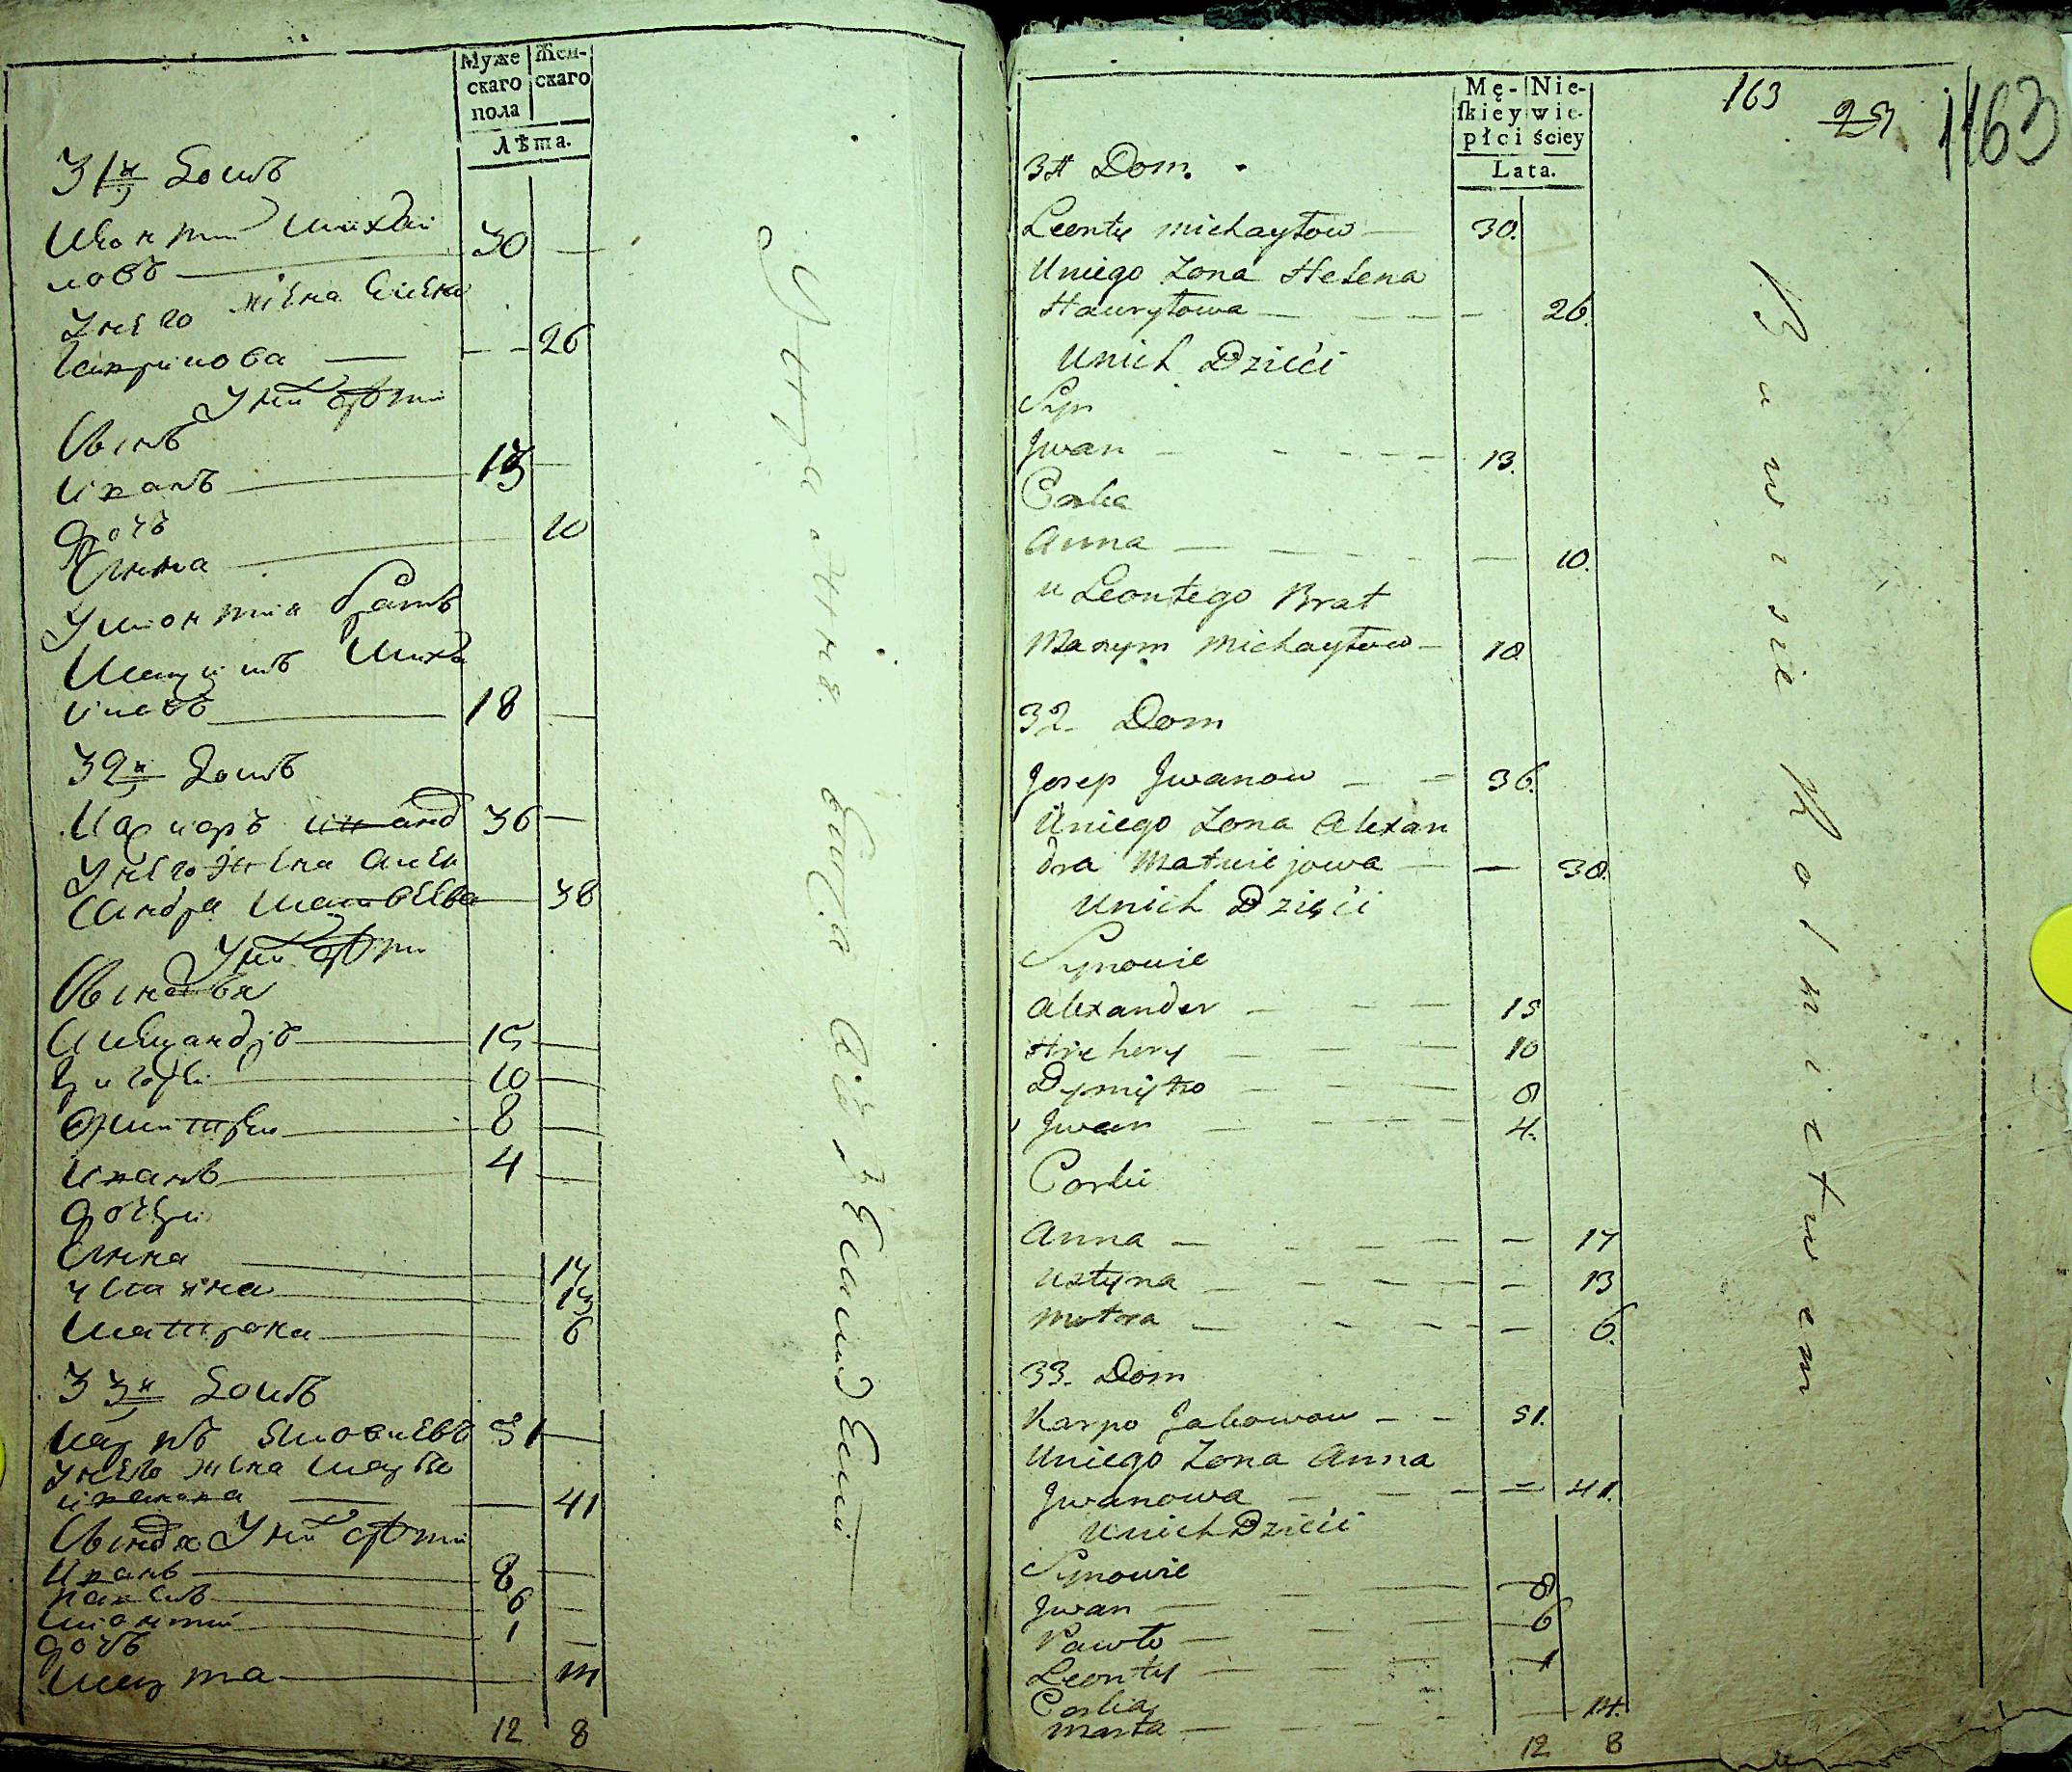 Муже
скаго
пола
Жен-
скаго
Лѣта.
31й Домъ
Леонтий Михай
ловъ 30
У него жена Елена
Гаврилова 26
У них дѣти
Сынъ
Иванъ 13
дочь
Анна 10
У Леонтия братъ
Максимъ Миха
йловъ 18
32й Домъ
36
У него жена Алек
сандра Матвеева 38
У них дѣти
Сыновья
Александръ 15
Григорей 10
Дмитрей 8
Иванъ 4
дочери
Анна 17
Устина 13
Матрона 6
33й Домъ
Карпъ Яковлевъ 51
У него жена Марья
Иванова 41
Сыновья У них дѣти
Иванъ 8
Павелъ 6
Леонтий 1
дочь
Марта 14
12 8
Mę-
skiey
płci
Nie-
wie-
ściey
Lata.
163
25
163
31 Dom.
Leonty Michayłow 30.
Uniego Zona Helena
Hawryłowa 26.
Unich Dzieci
Syn
Jwan 13.
Corka
Anna 10.
u Leontego Brat
Maxym Michayłow 18
32 Dom
Josep Jwanow 36.
Uniego Zona Alexan
dra Matwiejowa 38.
Unich Dzieci
Synowie
Alexander 15
Hrehory 10
Dymitro 8
Jwan 4.
Corki
Anna 17
Ustyna 13
Motora 6.
33. Dom
Karpo Jakowow 51.
Uniego Zona Anna
Jwanowa 41.
Unich Dzieci
Synowie
Jwan 8
Pawło 6
Leonty 1
Corka
Marta 14.
12 8
Bawi sie Rolnictwem